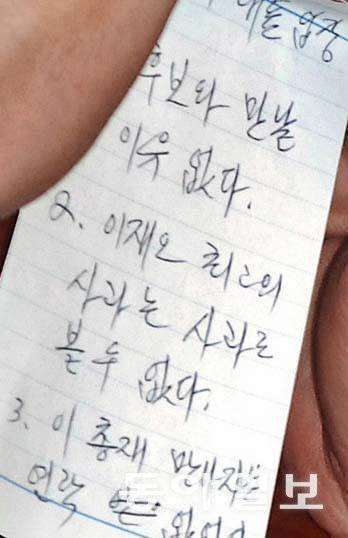 대한 입장
후보와 만날
이유 없다.
2. 이재오 최고의
사과는 사과로
볼 수 없다.
3. 이 총재 만나자는
연락
동아일보